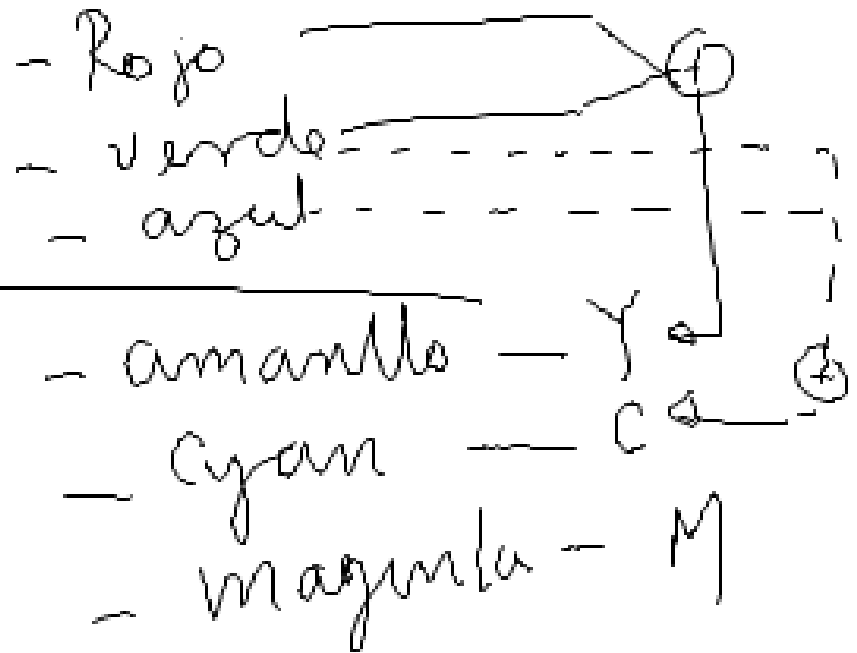 - Rojo
- verde
- azul
- amarillo - Y
- Cyan - C
- magenta - M